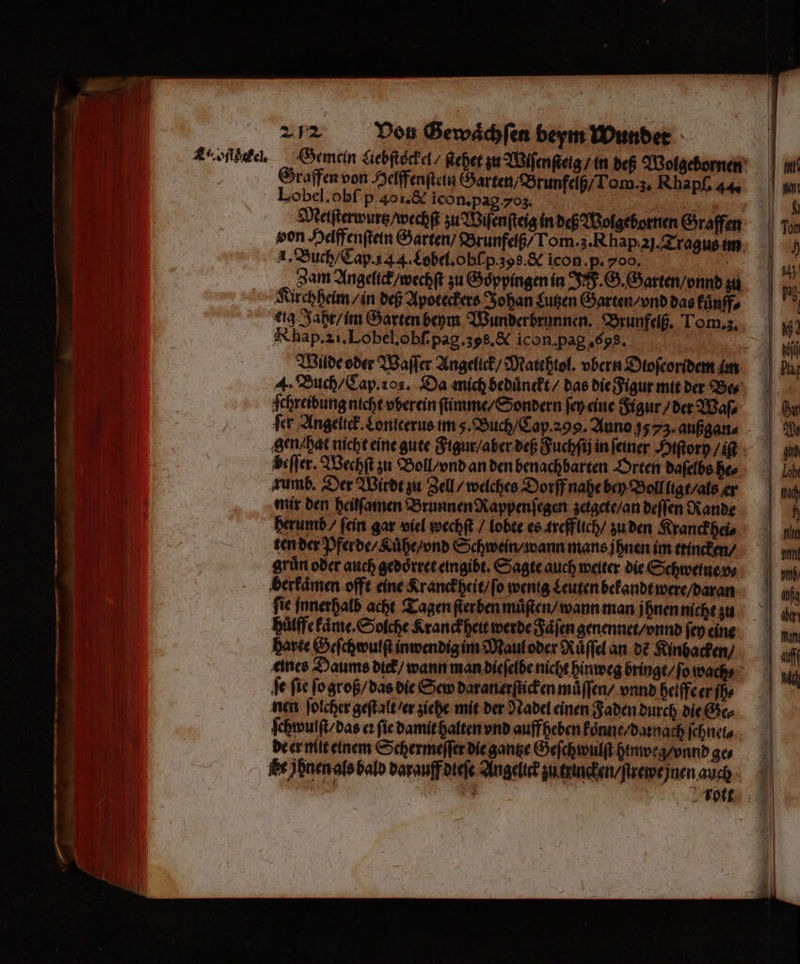 212 Von Gewåchſen beym Wunder
Gemein Liebſtöckel / ſtehet zu Wiſenſteig / in deß Wolgebornen
Graffen von Helffenſtein Garten / Brunfelß / Tom. 3. Rhapſ. 44.
Lobel. obſ p 401. & icon. pag. 703.
Meiſterwurtz / wechſt zu Wiſenſteig in deß Wolgebornen Graffen
von Helffenſtein Garten / Brunfelß / Tom. 3. Rhap. 2j. Tragus im
1. Buch / Cap. 144. Lobel. obſ. p. 398. & icon. p. 700.
Zam Angelick / wechſt zu Göppingen in J. F. G. Garten / vnnd zu
Kirchheim / in deß Apoteckers Johan Lutzen Garten / vnd das künff-
tig Jahr / im Garten beym Wunderbrunnen. Brunfelß. Tom. 3.
Rhap. 21. Lobel. obſ. pag. 398. & icon. pag. 698.
Wilde oder Waſſer Angelick / Matthtol. vbern Dioſcoridem im
4. Buch / Cap. 101. Da mich bedünckt / das die Figur mit der Be-
ſchreibung nicht vberein ſtimme / Sondern ſey eine Figur / der Waſ-
ſer Angelick. Lonicerus im 5. Buch / Cap. 299. Anno 1573. außgan-
gen / hat nicht eine gute Figur / aber deß Fuchſij in ſeiner Hiſtory / iſt
beſſer. Wechſt zu Boll / vnd an den benachbarten Orten daſelbs he-
rumb. Der Wirdt zu Zell / welches Dorff nahe bey Boll ligt / als er
mir den heilſamen Brunnen Rappenſegen zeigete / an deſſen Rande
herumb / ſein gar viel wechſt / lobte es trefflich / zu den Kranckhei-
ten der Pferde / Kühe / vnd Schwein / wann mans jhnen im trincken /
grün oder auch gedörret eingibt. Sagte auch weiter die Schweine v-
berkämen offt eine Kranckheit / ſo wenig Leuten bekandt were / daran
ſie jnnerhalb acht Tagen ſterben müſten / wann man jhnen nicht zu
hülffe käme. Solche Kranckheit werde Fäſen genennet / vnnd ſey eine
harte Geſchwulſt inwendig im Maul oder Rüſſel an dē Kinbacken /
eines Daums dick / wann man dieſelbe nicht hinweg bringt / ſo wach-
ſe ſie ſo groß / das die Sew daran erſticken müſſen / vnnd helffe er jh-
nen ſolcher geſtalt / er ziehe mit der Nadel einen Faden durch die Ge-
ſchwulſt / das er ſie damit halten vnd auffheben könne / darnach ſchnei-
de er mit einem Schermeſſer die gantze Geſchwulſt hinweg / vnnd ge-
be jhnen als bald darauff dieſe Angelick zu trincken / ſtrewe jnen auch
rott